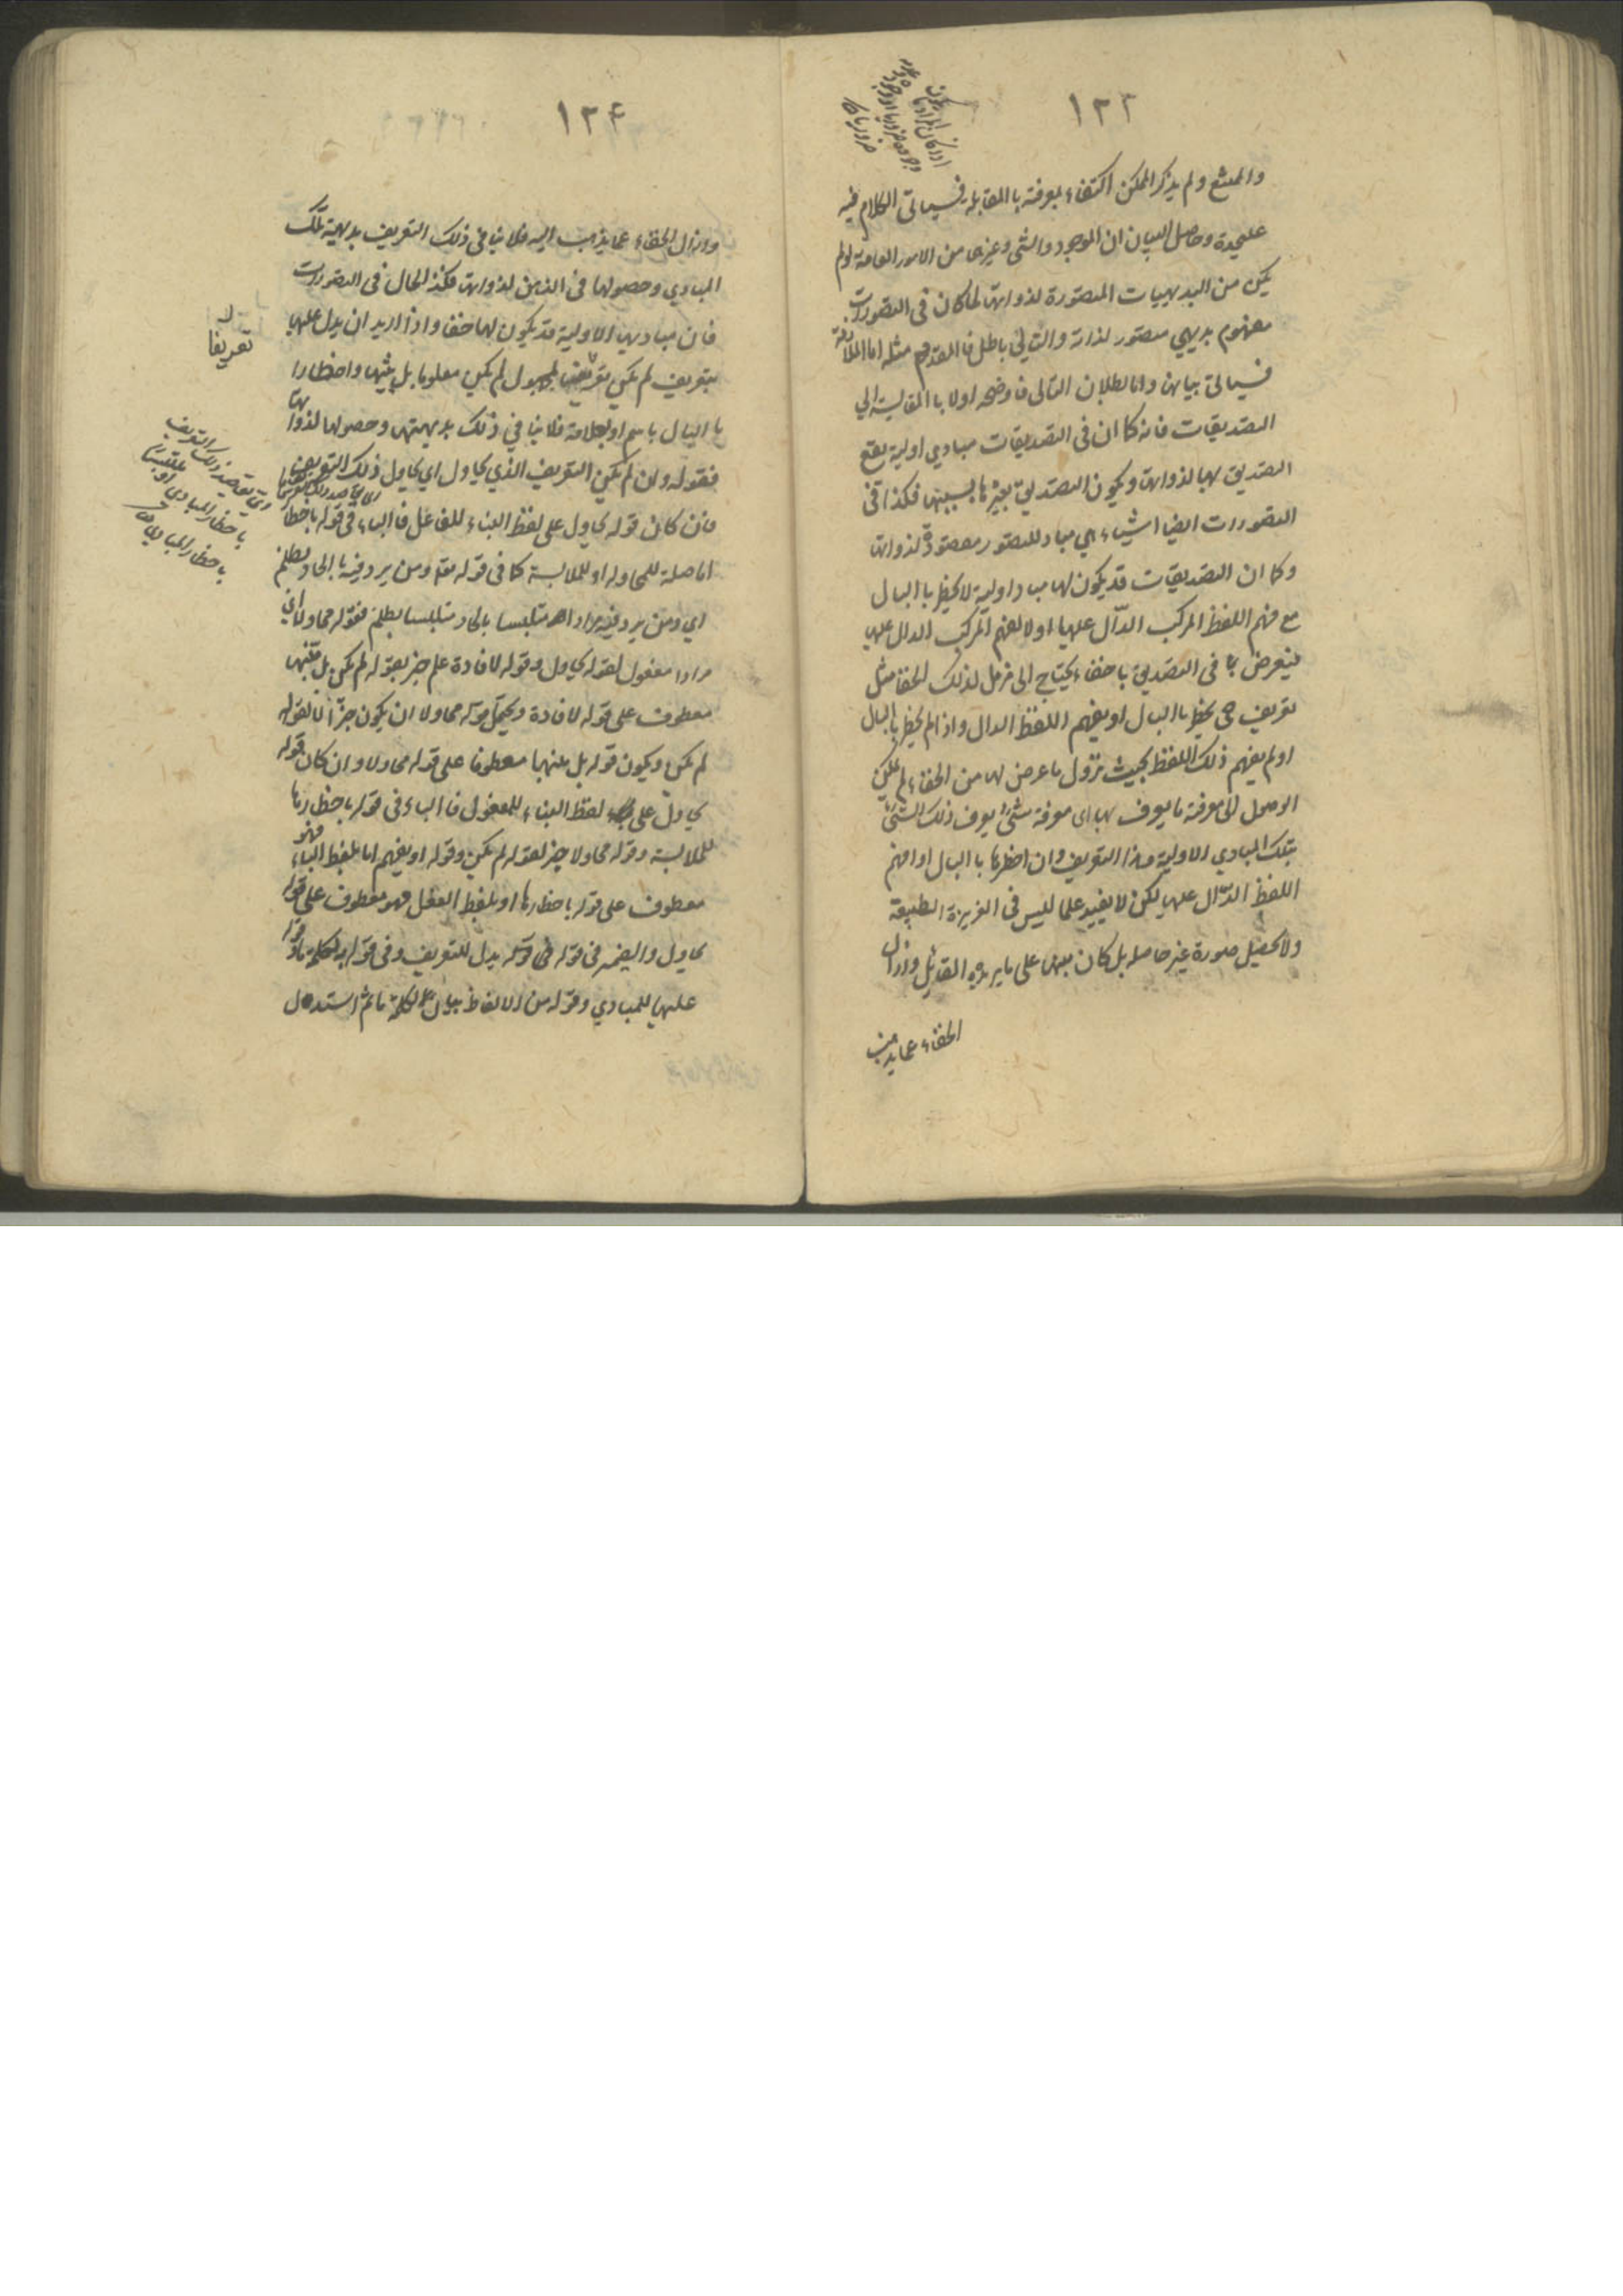 ١٢٣
والممتنع ولم يذكر الممكن اكتفاء بمعرفة باالمقابلة فسياتى الكلام فيه
عليحدة وحاصل البيان ان الموجود والشى وغيرها من الامور العامة لولم
يكن من البديهيات المتصورة لذواتها لما كان فى التصورات
مفهوم بديهي متصور لذاته والتالي باطل فالمقدم مثله اما الملازمة
فسياتى بيانها واما بطلان التالى فاوضحه اولا باالمقايسة الي
التصديقات فانه كما ان فى التصديقات مبادي اولية يقع
التصديق بها لذواتها ويكون التصديق بغيرها بسببها فكذا فى
التصورات ايضا اشياء هي مباد للتصور متصورة لذواتها
وكما ان التصديقات قد يكون لها مباد اولية لا يخطر باالبال
مع فهم اللفظ المركب الدال عليها اولا يفهم المركب الدال عليها
فيعرض لها فى التصديق بها خفاء يحتاج الى مزيل لذلك الخفا مثل
تعريف حتى يخطر باالبال او يفهم اللفظ الدال واذا لم يخطر باالبال
اولم يفهم ذلك اللفظ بحيث تزول ما عرض لها من الخفاء لم يمكن
الوصول الى معرفة ما يعرف بها اى معرفة شئ يعرف ذلك الشئ
بتلك المبادي الاولية هذا التعريف وان اخطرها باالبال او افهم
اللفظ الدال عليها لكن لا يفيد علما ليس فى الغريزة الطبيعة
ولا تحصيل صورة غير حاصله بل كان منبها على ما يريده القائل وازال
الخفاء عما يذهب
١٢٤
وازال الخفاء عما يذهب اليه فلا ينافى ذلك التعريف بديهية تلك
المبادي وحصولها فى الذهن لذواتها فكذا الحال فى التصورات
فان مباديها الاولية قد يكون لها خفا واذا اريد ان يدل عليها
بتعريف لم يكن تعريفا لمجهول لم يكن معلوما بل تنبيها واخطارا
باالبال باسم او بعلامة فلا ينافي ذلك بديهيتها وحصولها لذواتها
فقوله وان لم يكن التعريف الذي يحاول اي يحاول ذلك التعريف
فان كان قوله يحاول على لفظ البناء للفاعل فاالباء فى قوله باخطارها
اما صلة للمحاوله او للملابسة كما فى قوله تعه ومن يرد فيه باالحاد بظلم
اي ومن يرد فيه مرادا متلبسا بالحاد متلبسا بظلم فقوله محاولا اي
مرادا مفعول لقوله يحاول وقوله لافادة علم خبر لقوله لم يكن بل تنبيها
معطوف على قوله لافادة ويحتمل قوله محاولا ان يكون خبرا ثانيا لقوله
لم يكن ويكون قوله بل منبها معطوفا على قوله محاولا وان كان قوله
يحاول على لفظ البناء للمفعول فاالباء فى قوله باخطارها
للملابسة وقوله محاولا خبر لقوله لم يكن وقوله او يفهم اما بلفظ الباء فهو
معطوف على قوله باخطارها او بلفظ الفعل فهو معطوف على قوله
يحاول والضمير فى قوله يدل للتعريف وفى قوله
عليها للمبادي وقوله من الالفاظ بيان لكلمة ما ثم استدل
تعريفا
اى يقاصد ذلك التعريف
باخطار المبادى او
باخطار المبادي